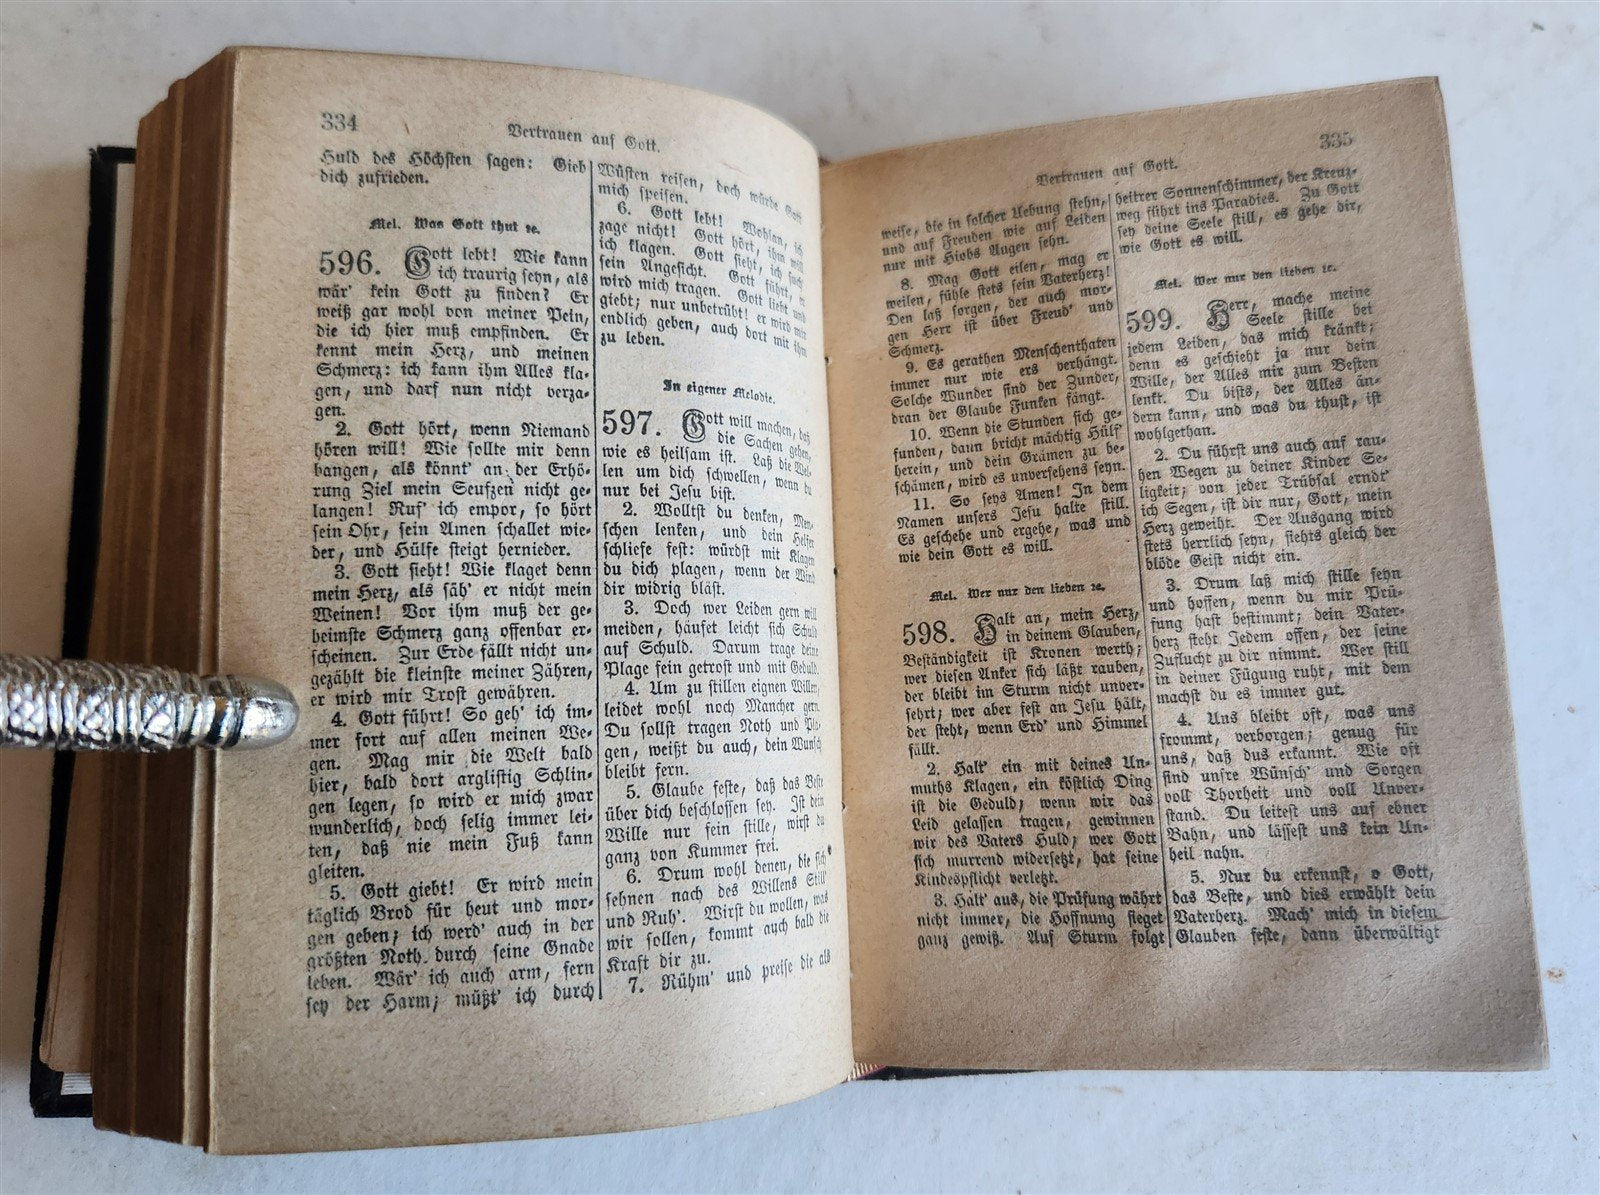 334
Vertrauen auf Gott.
Huld des Höchsten sagen: Gieb
dich zufrieden.
Mel. Was Gott thut ꝛc.
596. Gott lebt! Wie kann
ich traurig seyn, als
wär' kein Gott zu finden? Er
weiß gar wohl von meiner Pein,
die ich hier muß empfinden. Er
kennt mein Herz, und meinen
Schmerz: ich kann ihm Alles kla-
gen, und darf nun nicht verza-
gen.
2. Gott hört, wenn Niemand
hören will! Wie sollte mir denn
bangen, als könnt' an der Erhö-
rung Ziel mein Seufzen nicht ge-
langen! Ruf' ich empor, so hört
sein Ohr, sein Amen schallet wie-
der, und Hülfe steigt hernieder.
3. Gott sieht! Wie klaget denn
mein Herz, als säh' er nicht mein
Weinen! Vor ihm muß der ge-
heimste Schmerz ganz offenbar er-
scheinen. Zur Erde fällt nicht un-
gezählt die kleinste meiner Zähren,
er wird mir Trost gewähren.
4. Gott führt! So geh' ich im-
mer fort auf allen meinen We-
gen. Mag mir die Welt bald
hier, bald dort arglistig Schlin-
gen legen, so wird er mich zwar
wunderlich, doch selig immer lei-
ten, daß nie mein Fuß kann
gleiten.
5. Gott giebt! Er wird mein
täglich Brod für heut und mor-
gen geben; ich werd' auch in der
größten Noth durch seine Gnade
leben. Wär' ich auch arm, fern
sey der Harm; müßt' ich durch
Wüsten reisen, doch würde Gott
mich speisen.
6. Gott lebt! Wohlan, ich
zage nicht! Gott hört, ihm will
ich klagen. Gott sieht, ich such'
sein Angesicht. Gott führt, er
wird mich tragen. Gott liebt und
giebt; nur unbetrübt! er wird mir
endlich geben, auch dort mit ihm
zu leben.
In eigener Melodie.
597. Gott will machen, daß
die Sachen gehen,
wie es heilsam ist. Laß die Wel-
len um dich schwellen, wenn du
nur bei Jesu bist.
2. Wolltst du denken, Men-
schen lenken, und dein Helfer
schliefe fest: würdst mit Klagen
du dich plagen, wenn der Wind
dir widrig bläst.
3. Doch wer Leiden gern will
meiden, häufet leicht sich Schuld
auf Schuld. Darum trage deine
Plage fein getrost und mit Geduld.
4. Um zu stillen eignen Willen,
leidet wohl noch Mancher gern.
Du sollst tragen Noth und Pla-
gen, weißt du auch, dein Wunsch
bleibt fern.
5. Glaube feste, daß das Beste
über dich beschlossen sey. Ist dein
Wille nur fein stille, wirst du
ganz von Kummer frei.
6. Drum wohl denen, die sich
sehnen nach des Willens Still'
und Ruh'. Wirst du wollen, was
wir sollen, kommt auch bald die
Kraft dir zu.
7. Rühm' und preise die als
335
Vertrauen auf Gott.
weise, die in solcher Uebung stehn,
und auf Freuden wie auf Leiden
nur mit Hiobs Augen sehn.
8. Mag Gott eilen, mag er
weilen, fühle stets sein Vaterherz!
Den laß sorgen, der auch mor-
gen Herr ist über Freud' und
Schmerz.
9. Es gerathen Menschenthaten
immer nur wie ers verhängt.
Solche Wunder sind der Zunder,
dran der Glaube Funken fängt.
10. Wenn die Stunden sich ge-
funden, dann bricht mächtig Hülf'
herein, und dein Grämen zu be-
schämen, wird es unversehens seyn.
11. So seys Amen! In dem
Namen unsers Jesu halte still.
Es geschehe und ergehe, was und
wie dein Gott es will.
Mel. Wer nur den lieben ꝛc.
598. Halt an, mein Herz,
in deinem Glauben,
Beständigkeit ist Kronen werth;
wer diesen Anker sich läßt rauben,
der bleibt im Sturm nicht unver-
sehrt; wer aber fest an Jesu hält,
der steht, wenn Erd' und Himmel
fällt.
2. Halt' ein mit deines Un-
muths Klagen, ein köstlich Ding
ist die Geduld; wenn wir das
Leid gelassen tragen, gewinnen
wir des Vaters Huld; wer Gott
sich murrend widersetzt, hat seine
Kindespflicht verletzt.
3. Halt' aus, die Prüfung währt
nicht immer, die Hoffnung sieget
ganz gewiß. Auf Sturm folgt
heitrer Sonnenschimmer, der Kreuz-
weg führt ins Paradies. Zu Gott
sey deine Seele still, es gehe dir,
wie Gott es will.
Mel. Wer nur den lieben ꝛc.
599. Herr, mache meine
Seele stille bei
jedem Leiden, das mich kränkt;
denn es geschieht ja nur dein
Wille, der Alles mir zum Besten
lenkt. Du bists, der Alles än-
dern kann, und was du thust, ist
wohlgethan.
2. Du führst uns auch auf rau-
hen Wegen zu deiner Kinder Se-
ligkeit; von jeder Trübsal erndt'
ich Segen, ist dir nur, Gott, mein
Herz geweiht. Der Ausgang wird
stets herrlich seyn, siehts gleich der
blöde Geist nicht ein.
3. Drum laß mich stille seyn
und hoffen, wenn du mir Prü-
fung hast bestimmt; dein Vater-
herz steht Jedem offen, der seine
Zuflucht zu dir nimmt. Wer still
in deiner Fügung ruht, mit dem
machst du es immer gut.
4. Uns bleibt oft, was uns
frommt, verborgen; genug für
uns, daß dus erkannt. Wie oft
sind unsre Wünsch' und Sorgen
voll Thorheit und voll Unver-
stand. Du leitest uns auf ebner
Bahn, und lässest uns kein Un-
heil nahn.
5. Nur du erkennst, o Gott,
das Beste, und dies erwählt dein
Vaterherz. Mach' mich in diesem
Glauben feste, dann überwältigt